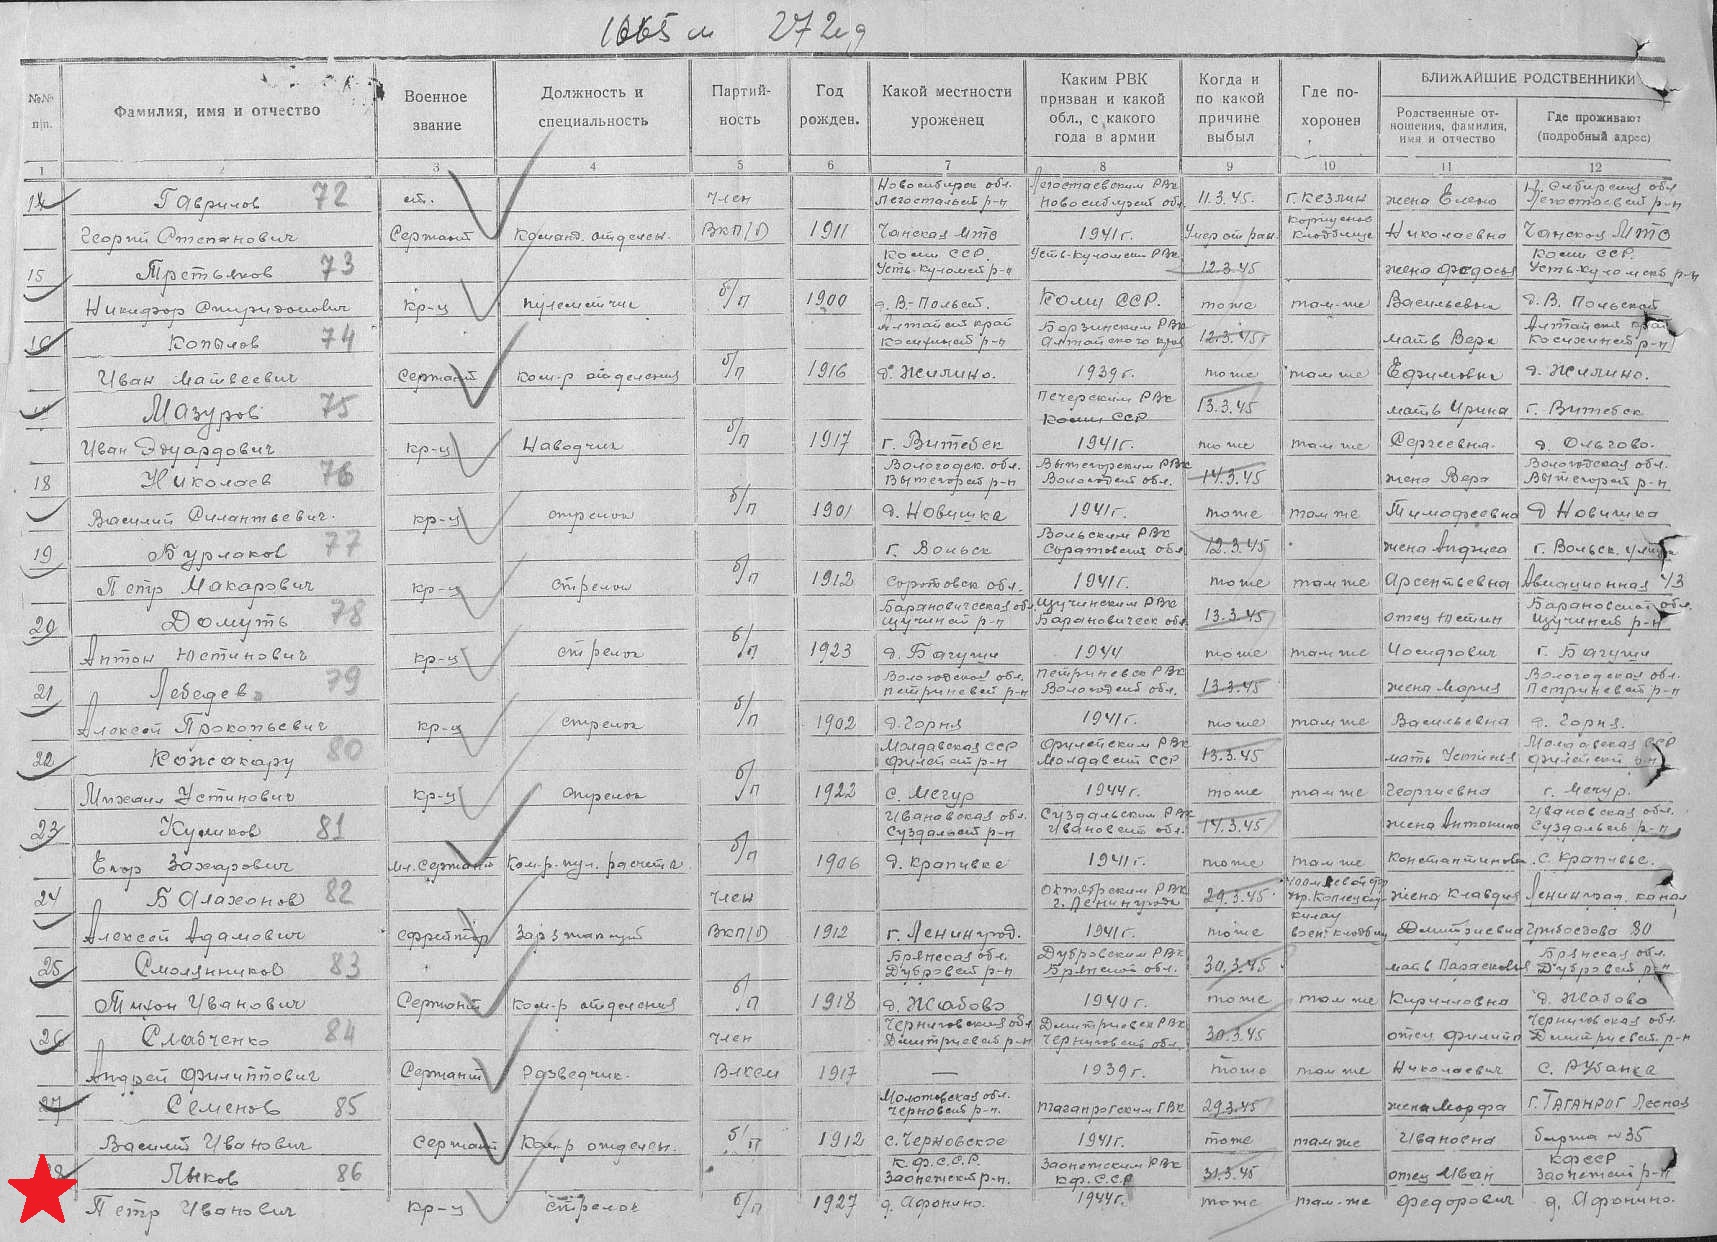 1665 м 272 сд
№№ п/п.
Фамилия, имя и отчество
Военное звание
Должность и специальность
Партийность
Год рожден.
Какой местности уроженец
Каким РВК призван и какой обл., с какого года в армии
Когда и по какой причине выбыл
Где похоронен
БЛИЖАЙШИЕ РОДСТВЕННИКИ
Родственные отношения, фамилия, имя и отчество
Где проживают (подробный адрес)
1 2 3 4 5 6 7 8 9 10 11 12
14 Гаврилов 72 ст. Член Новосибирск обл. Легостаевским РВК 11.3.45. г. Кезлин жена Елена Н. Сибирская обл.
Легостаевск р-н Новосибирск обл. Легостаевский р-н
Георгий Степанович Сержант Команд. отделен. ВКП(б) 1911 Чанская МТС 1941 г. Умер от ран Николаевна Чанская МТС
15 Третьяков 73 Коми ССР. Усть-Куломским РВК 12.3.45 жена Федосья Коми ССР.
Усть-Куломск р-н Усть-Куломск р-н
Никифор Спиридонович кр-ц пулеметчик б/п 1900 д. В-Польск. Коми ССР. тоже там-же Васильевна д. В. Польской
16 Копылов 74 Алтайск край РВК 12.3.45 г мать Вера Алтайский край
Косихинск р-н Алтайского края Косихинск р-н
Иван Матвеевич Сержант Ком-р отделения б/п 1916 д. Жилино. 1939 г. тоже там же Ефимовна д. Жилино.
Мазуров 75 Печерским РВК 13.3.45 мать Ирина г. Витебск
Коми ССР
Иван Эдуардович кр-ц Наводчик б/п 1917 г. Витебск 1941 г. тоже там же Сергеевна. д. Ольгово.
18 Николаев 76 Вологодск. обл. Вытегорским РВК 14.3.45 жена Вера Вологодская обл.
Вытегорск р-н Вологодск обл. Вытегорск р-н
Василий Силантьевич. кр-ц стрелок б/п 1901 д. Новишка 1941 г. тоже там же Тимофеевна д Новишка
19 Бурлаков 77 г. Вольск Вольским РВК 12.3.45 жена Анфиса г. Вольск. улица
Саратовский обл.
Петр Макарович кр-ц стрелок б/п 1912 Саратовск обл. 1941 г. тоже там же Арсентьевна Авиационная 43
20 Домуть 78 Барановичсская обл. Щучинским РВК 13.3.45 отец Юстин Барановский обл.
Щучинск р-н Барановическ обл. Щучинск р-н
Антон Юстинович кр-ц стрелок б/п 1923 д. Багуши 1944 тоже там же Иосифович г. Багуши
21 Лебедев 79 Вологодская обл. Петриневск РВК 13.3.45 жена Мария Вологодская обл.
Петриневск р-н Вологодск обл. Петриневск р-н
Алексей Прокопьевич кр-ц стрелок б/п 1902 д. Горня 1941 г. тоже там же Васильевна д. Горня.
22 Кожакару 80 Молдавская ССР РВК 13.3.45 мать Устинья Молдавская ССР
Молдавск ССР
Михаил Устинович кр-ц стрелок б/п 1922 с. Мегур 1944 г. тоже там же Георгиевна г. Мегур.
23 Куликов 81 Ивановская обл. Суздальским РВК 14.3.45 жена Антонина Ивановская обл.
Суздальск р-н Ивановск обл. Суздальск р-н
Егор Захарович мл. Сержант Ком-р пул. расчета б/п 1906 д. Крапивка 1941 г. тоже там же Константиновна с. Крапивье.
24 Балахонов 82 Член Октябрским РВК 29.3.45 жена Клавдия Ленинград. канал
г. Ленинграда
Алексей Адамович ефрейтор ВКП(б) 1912 г. Ленинград. 1941 г. тоже Дмитриевна Грибоедова 80
25 Смолянников 83 Брянская обл. Дубровским РВК 30.3.45 мать Парасковья Брянская обл.
Дубровск р-н Брянской обл. Дубровск р-н
Тихон Иванович Сержант Ком-р отделения б/п 1918 д. Жабово 1940 г. тоже там же Кирилловна д. Жабово
26 Слабченко 84 Член Черниговская обл Дмитриевск РВК 30.3.45 отец Филипп Черниговская обл.
Дмитриевск р-н Черниговск обл. Дмитриевск. р-н
Андрей Филиппович Сержант Разведчик. ВЛКСМ 1917 — 1939 г. тоже там же Николаевич с. Рубанка
27 Семенов 85 Молотовская обл. Таганрогским ГВК 29.3.45 жена Марфа г. Таганрог Лесная
Черновск р-н.
Василий Иванович Сержант Ком-р отделен. б/п 1912 с. Черновское 1941 г. тоже там же Ивановна биржа № 35
28 Лыков 86 К.Ф.С.С.Р. Заонежским РВК 31.3.45 отец Иван КФССР
Заонежск р-н. КФ.С.СР Заонежский р-н
Петр Иванович кр-ц стрелок б/п 1927 д. Афонино. 1944 г. тоже там-же Федорович д. Афонино.